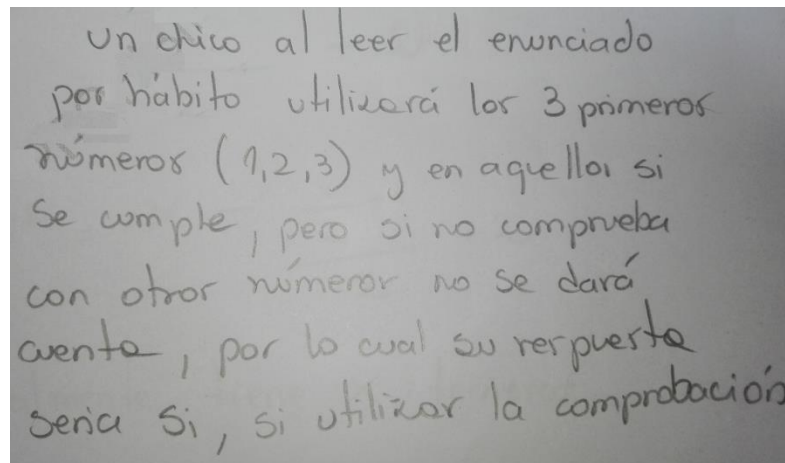 Un chico al leer el enunciado
por hábito utilizará los 3 primeros
números (1,2,3) y en aquellos si
se cumple, pero si no comprueba
con otros números no se dará
cuenta, por lo cual su respuesta
seria si, si utilizar la comprobación